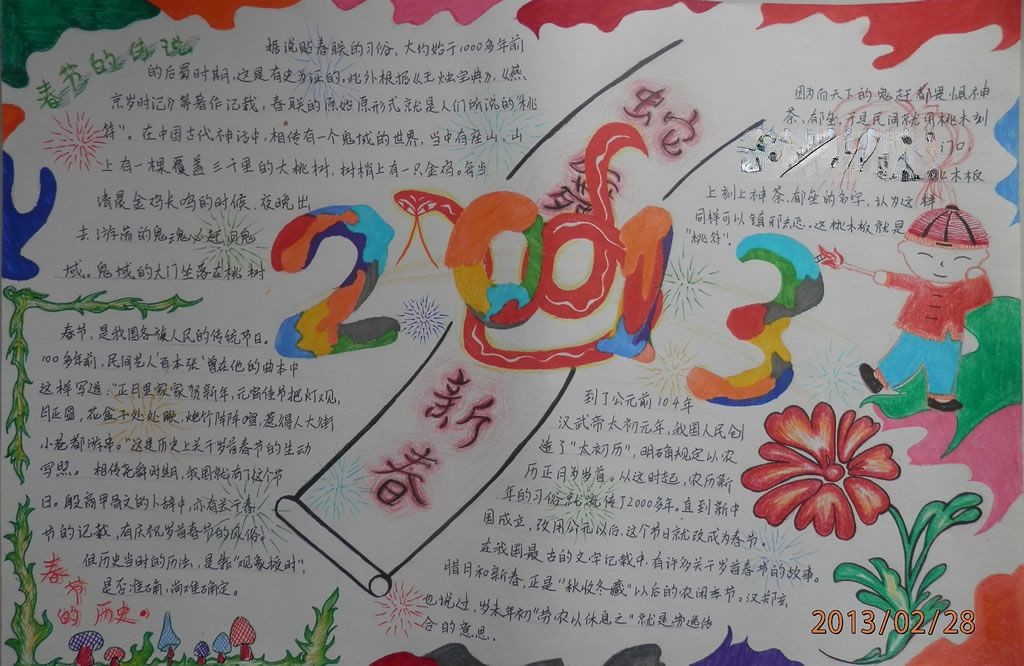 春节的传说
据说贴春联的习俗,大约始于1000多年前
的后蜀时期,这是有史为证的,此外根据《玉烛宝典》,《燕
京岁时记》等著作记载,春联的原始形式就是人们所说的"桃
符"。在中国古代神话中,相传有一个鬼域的世界,当中有座山,山
上有一棵覆盖三千里的大桃树,树梢上有一只金鸡。每当
清晨金鸡长鸣的时候,夜晚出
去游荡的鬼魂必赶回鬼
域。鬼域的大门坐落在桃树
因为而天下的鬼
都畏惧神
荼、郁垒,于是民间就用桃木刻
门口,
木板
上刻上神荼、郁垒的名字,认为这样
同样可以镇邪去恶。这桃木板就是
"桃符"。
2013
蛇
新
春
春节,是我国各族人民的传统节日,
100多年前,民间艺人'百本张'曾在他的曲本中
这样写道:"正月里家家贺新年,元宵佳节把灯观,
月正圆,花盒子处处
,炮竹阵阵喧,惹得人大街
小巷都游串。"这是历史上关于岁首春节的生动
写照。相传尧舜时期,我国就有了这个节
日。殷商甲骨文的卜辞中,亦有关于春
坊的记载,有庆祝岁首春节的风俗。
但历史当时的历法,是靠"观象授时",
是否准确,尚难确定。
春节的历史。
到了公元前104年
汉武帝太初元年,我国人民创
造了"太初历",明确规定以农
历正月为岁首。从这时起,农历新
年的习俗就流传了2000多年,直到新中
国成立,改用公元以后,这个节日就改成为春节。
在我国最古的文字记载中,有许多关于岁首春节的故事。
腊月和新春,正是"秋收冬藏"以后的农闲季节。汉郑玄
也说过,岁末年初"劳农以休息之"就是劳逸结
合的意思。
2013/02/28